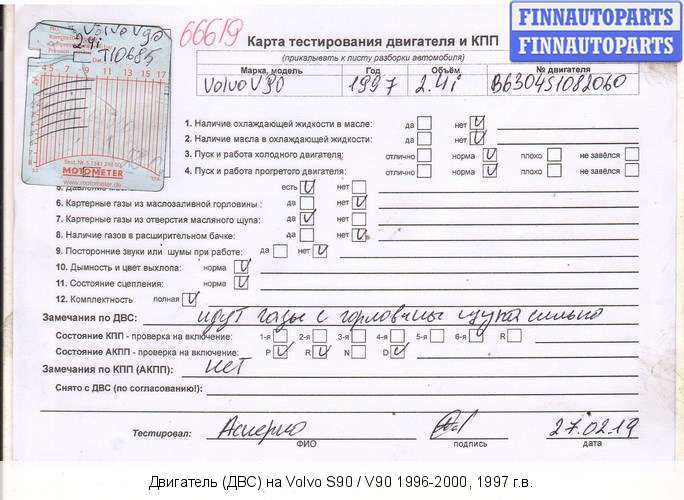 Volvo V90
2.4i
T10685
5 7 9 11 13 15 17
MOTOMETER
www.motometer.de
66619
FINNAUTOPARTS
FINNAUTOPARTS
Карта тестирования двигателя и КПП
(прикалывать к листу разборки автомобиля)
Марка, модель Год Объём № двигателя
Volvo V90 1997 2.4i B6304S1082060
1. Наличие охлаждающей жидкости в масле: да нет V
2. Наличие масла в охлаждающей жидкости: да нет V
3. Пуск и работа холодного двигателя: отлично норма V плохо не завёлся
4. Пуск и работа прогретого двигателя: отлично норма V плохо не завёлся
есть V нет
6. Картерные газы из маслозаливной горловины: да нет V
7. Картерные газы из отверстия масляного щупа: да V нет
8. Наличие газов в расширительном бачке: да нет V
9. Посторонние звуки или шумы при работе: да нет V
10. Дымность и цвет выхлопа: норма V
11. Состояние сцепления: норма V
12. Комплектность полная V
Замечания по ДВС: идут газы с горловины щупа сильно
Состояние КПП - проверка на включение: 1-я 2-я 3-я 4-я 5-я 6-я R
Состояние АКПП - проверка на включение: P V R V N D V
Замечания по КПП (АКПП): нет
Снято с ДВС (по согласованию!):
Тестировал: 27.02.19
ФИО подпись дата
Двигатель (ДВС) на Volvo S90 / V90 1996-2000, 1997 г.в.